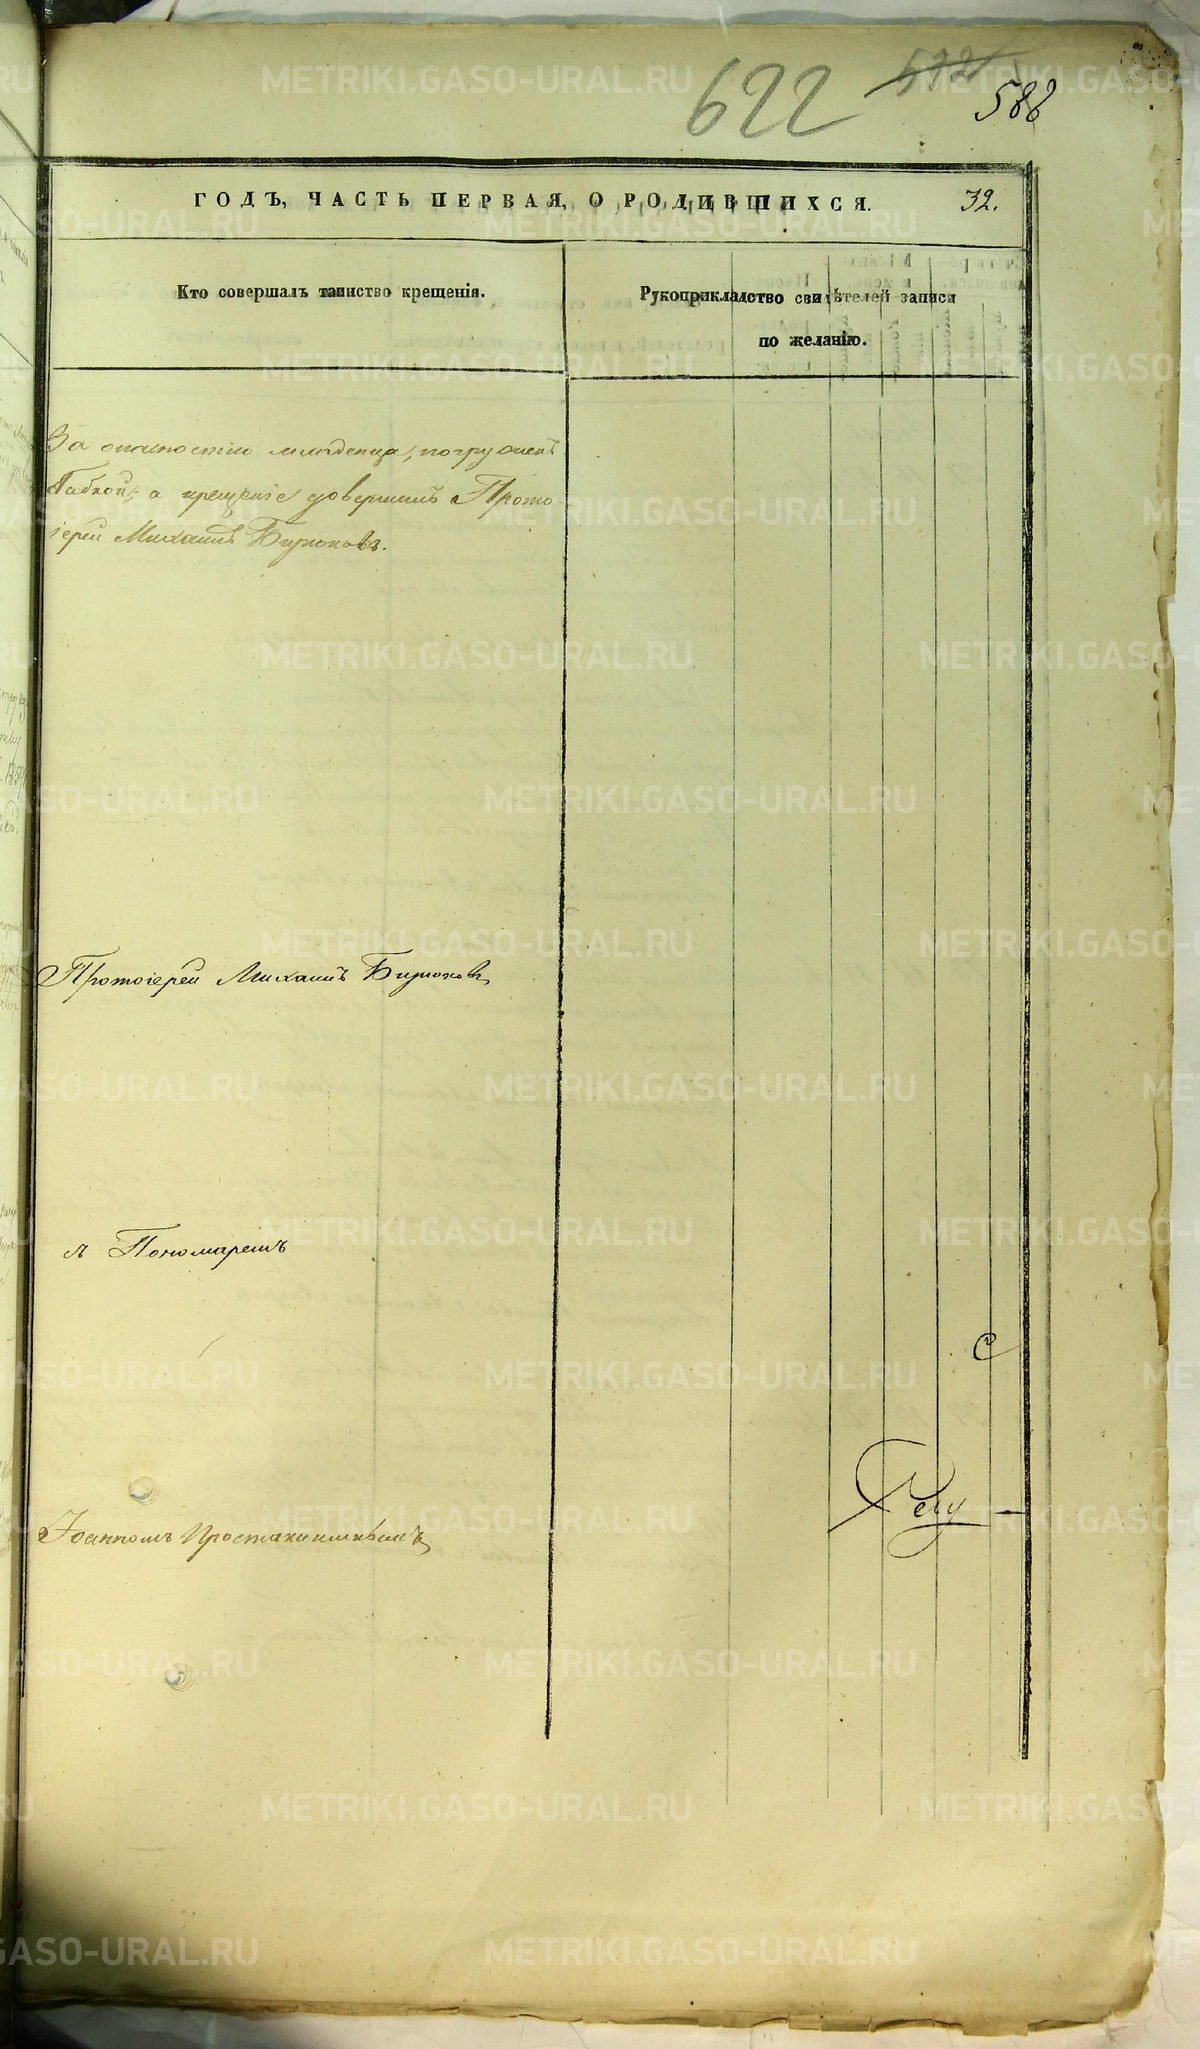 622 572 588
ГОДЪ, ЧАСТЬ ПЕРВАЯ, О РОДИВШИХСЯ. 32.
Кто совершалъ таинство крещенія.
Рукоприкладство свидѣтелей записи
по желанію.
За опасностію младенца, погружен
бабкой, а крещеніе довершилъ Прото
іерей Михаилъ Бирюковъ.
Протоіерей Михаилъ Бирюковъ
съ Пономаремъ
С
Іоанномъ
METRIKI.GASO-URAL.RU